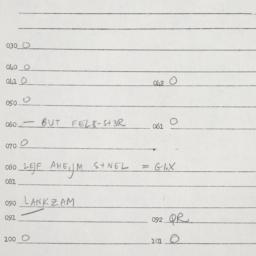 030 O
040 O
041 O 042 O
050 O
060 — BUT FELZ-STJR 061 O
070 O
080 LEJF AHE,JM S+NEL = GLX
081
090 LANKZAM
091 092 QR
100 O 101 O